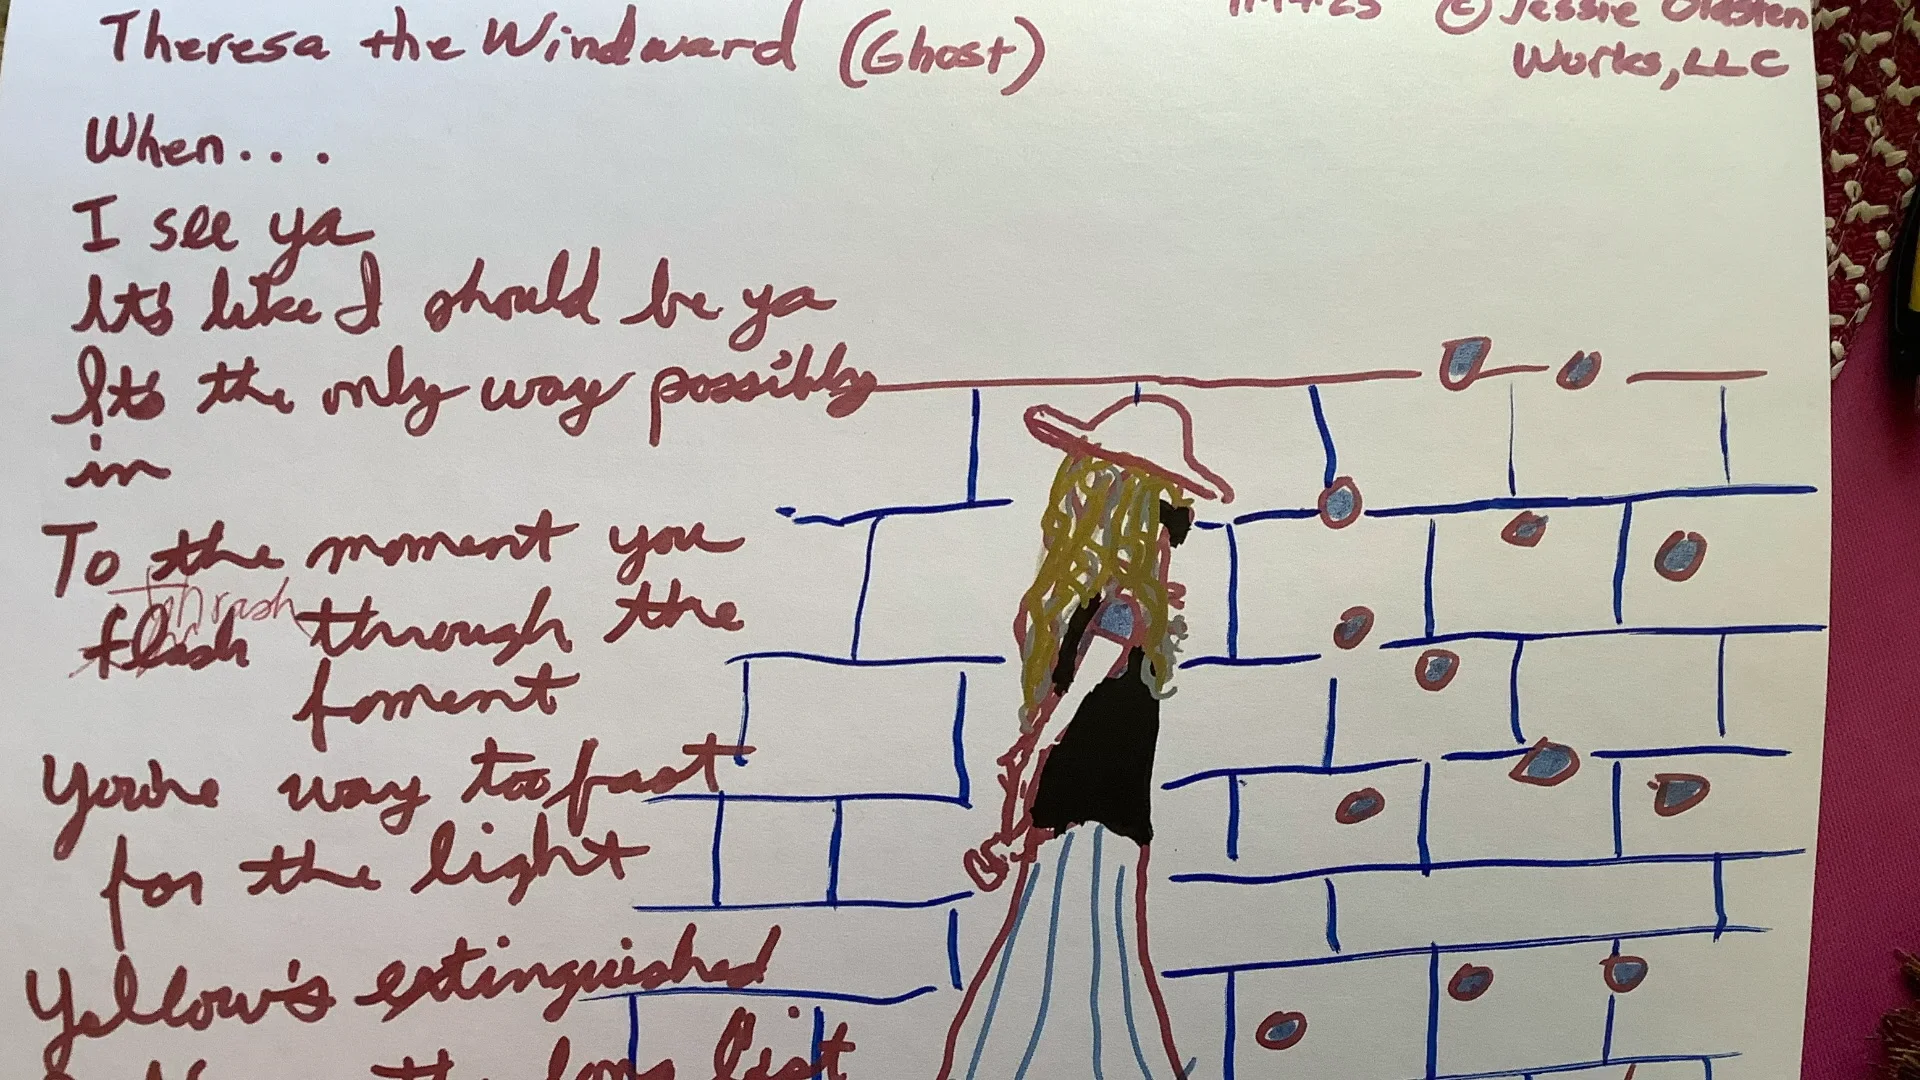 Theresa the Windward (Ghost)
© Jessie Oldsten
Works, LLC
When...
I see ya
It's like I should be ya
It's the only way possibly
in
To the moment you
thrash
flash through the
foment
You're way too fast
for the light
Yellow's extinguished
the long list